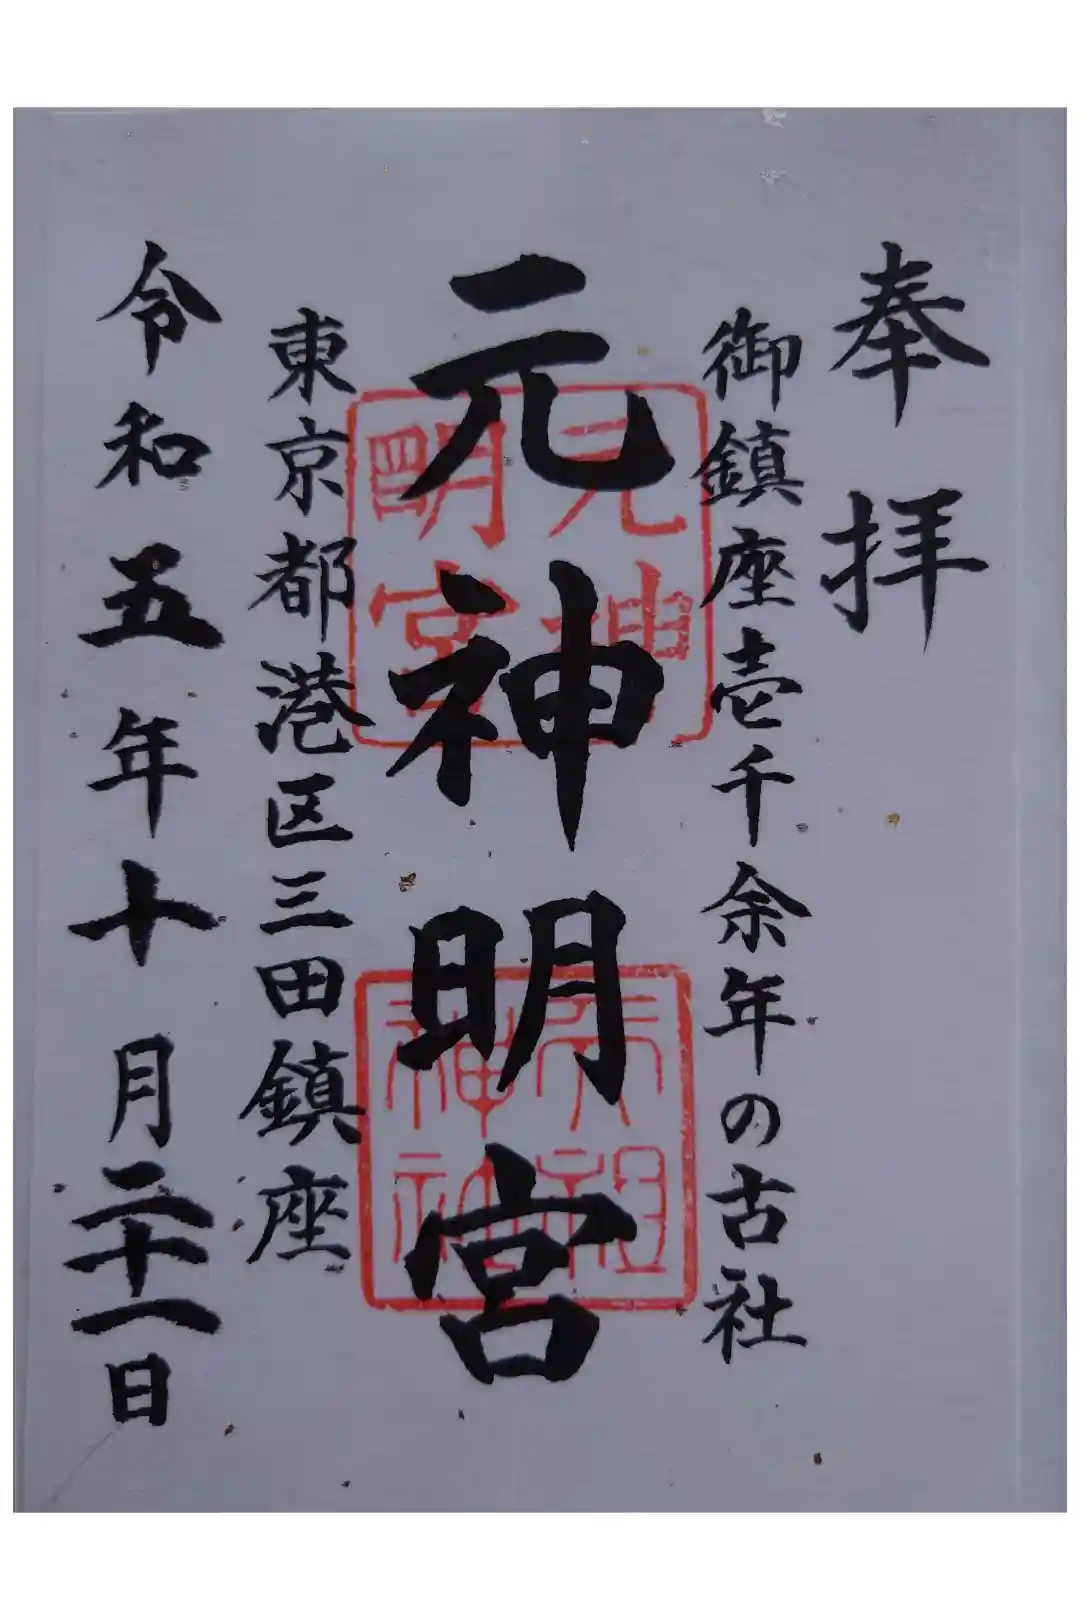 奉拝
御鎮座壱千余年の古社
元神明宮
元神
明宮
天祖
神社
東京都港区三田鎮座
令和五年十月二十一日